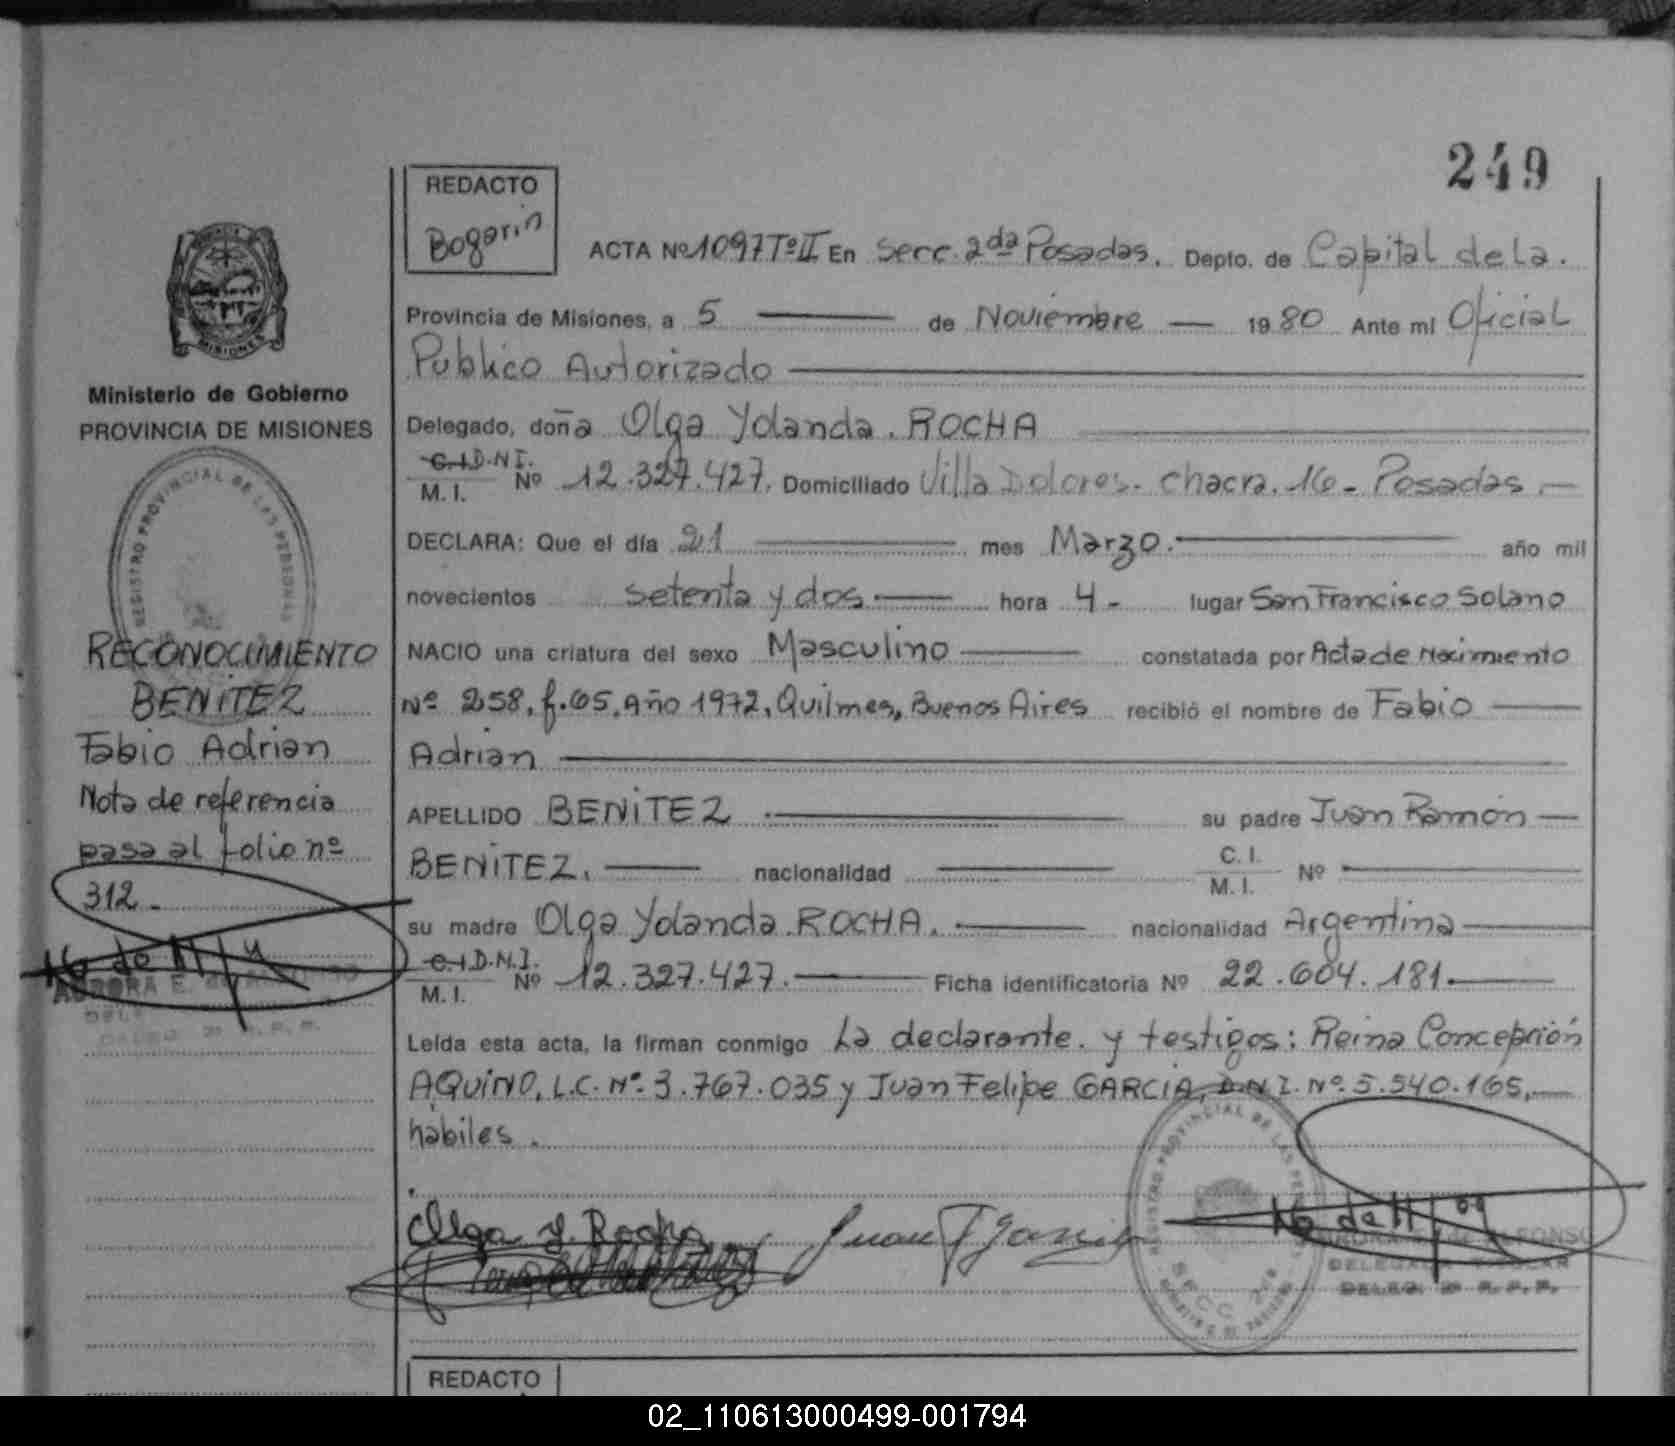 249
REDACTO
Bogarin
ACTA Nº 1097 Tº II En Secc. 2da Posadas. Depto. de Capital de la.
Provincia de Misiones, a 5 de Noviembre 1980 Ante mi Oficial
Publico Autorizado
Delegado, doña Olga Yolanda. ROCHA
C.I D.N.I.
M. I. Nº 12.327.427. Domiciliado Villa Dolores. Chacra. 16- Posadas.
DECLARA: Que el día 21 mes Marzo. año mil
novecientos setenta y dos hora 4- lugar San Francisco Solano
NACIO una criatura del sexo Masculino constatada por Acta de Nacimiento
Nº 258, f. 65, Año 1972, Quilmes, Buenos Aires recibió el nombre de Fabio
Adrian
APELLIDO BENITEZ su padre Juan Ramón
BENITEZ. nacionalidad C. I.
M. I. Nº
su madre Olga Yolanda. ROCHA. nacionalidad Argentina
C.I D.N.I.
M. I. Nº 12.327.427. Ficha identificatoria Nº 22.604.181.
Leída esta acta, la firman conmigo La declarante. y testigos: Reina Concepción
AQUINO, L.C. Nº 3.767.035 y Juan Felipe GARCIA, D.N.I. Nº. 5.540.165,
hábiles.
Olga Y. Rocha
Juan F Garcia
REGISTRO PROVINCIAL DE LAS PERSONAS
SECC 2da
DELEGADA TITULAR
DELEG. 2ª R. P. P.
MISIONES
Ministerio de Gobierno
PROVINCIA DE MISIONES
REGISTRO PROVINCIAL DE LAS PERSONAS
RECONOCIMIENTO
BENITEZ
Fabio Adrian
Nota de referencia
pasa al folio nº
312-
AURORA E.
DELEG. 2ª R. P. P.
REDACTO
02_110613000499-001794